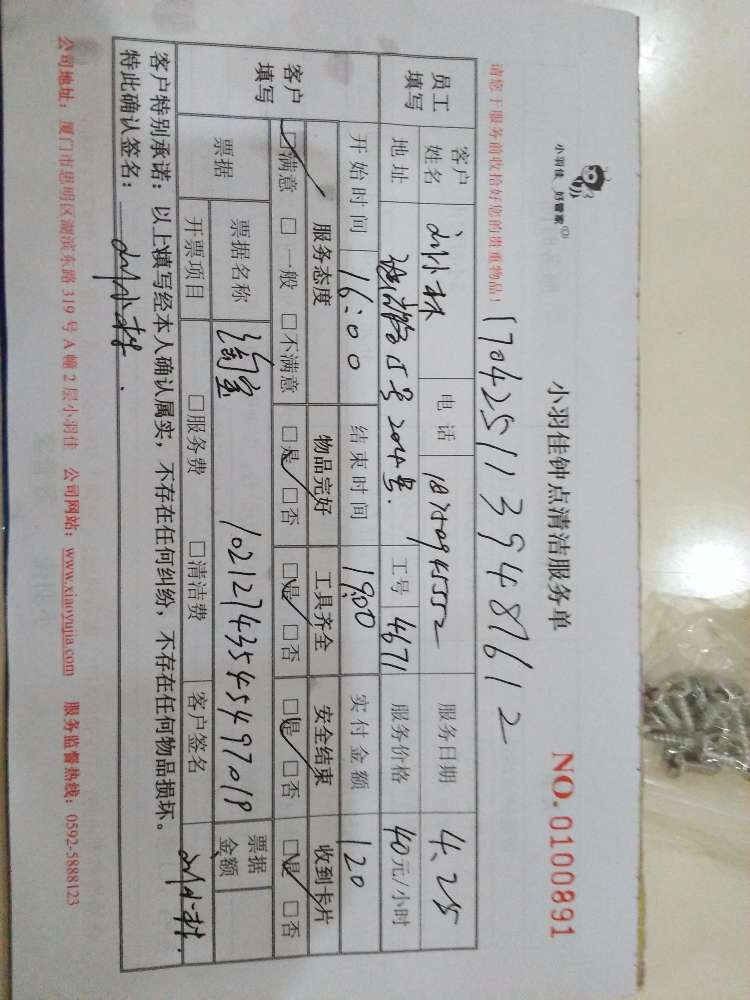 小羽佳 好管家
小羽佳钟点清洁服务单
NO.0100891
请您于服务前收拾好您的贵重物品!
170425113948612
员工填写 客户姓名 电话 服务日期 4.25
地址 15号204号. 工号 4671 服务价格 40元/小时
开始时间 16:00 结束时间 19:00 实付金额 120
客户填写 服务态度 物品完好 工具齐全 安全结束 收到卡片
☑满意 □一般 □不满意 ☑是 □否 ☑是 □否 ☑是 □否 ☑是 □否
票据 票据名称 淘宝 票据金额
开票项目 □服务费 □清洁费 客户签名
客户特别承诺:以上填写经本人确认属实,不存在任何纠纷,不存在任何物品损坏。
特此确认签名:
公司地址:厦门市思明区湖滨东路319号A幢2层小羽佳 公司网站:www.xiaoyujia.com 服务监督热线:0592-5888123